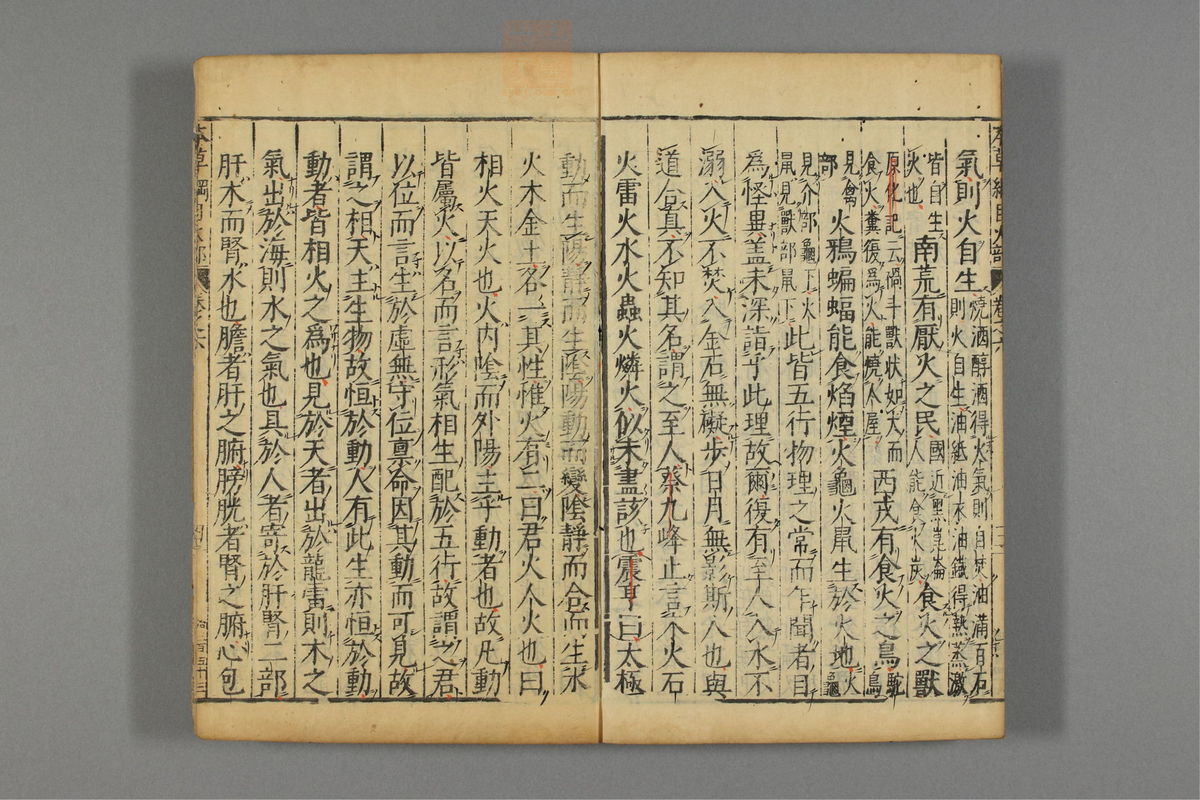 本草綱目火部 卷之六
氣則火自生燒酒醇酒得火氣則自焚油滿百石則火自生油紙油水油鐵得熱蒸激
皆自生火也南荒有厭火之民國近黑崑崙人能食火炭食火之獸
原化記云禍斗獸狀如犬而食火糞復爲火能燒人屋西戎有食火之鳥駝鳥
見禽部火鴉蝙蝠能食焰煙火龜火鼠生於火地火龜
見介部龜下火鼠見獸部鼠下此皆五行物理之常而乍聞者目
爲怪異蓋未深詣乎此理故爾復有至人入水不
溺入火不焚入金石無礙步日月無影斯人也與
道合真不知其名謂之至人蔡九峰止言木火石
火雷火水火蟲火燐火似未盡該也震亨曰太極
動而生陽靜而生陰陽動而變陰靜而合而生水
火木金土各一其性惟火有二曰君火人火也曰
相火天火也火内陰而外陽主乎動者也故凡動
皆屬火以名而言形氣相生配於五行故謂之君
以位而言生於虛無守位稟命因其動而可見故
謂之相天主生物故恒於動人有此生亦恒於動
動者皆相火之爲也見於天者出於龍雷則木之
氣出於海則水之氣也具於人者寄於肝腎二部
肝木而腎水也膽者肝之腑膀胱者腎之腑心包
本草綱目火部 卷之六